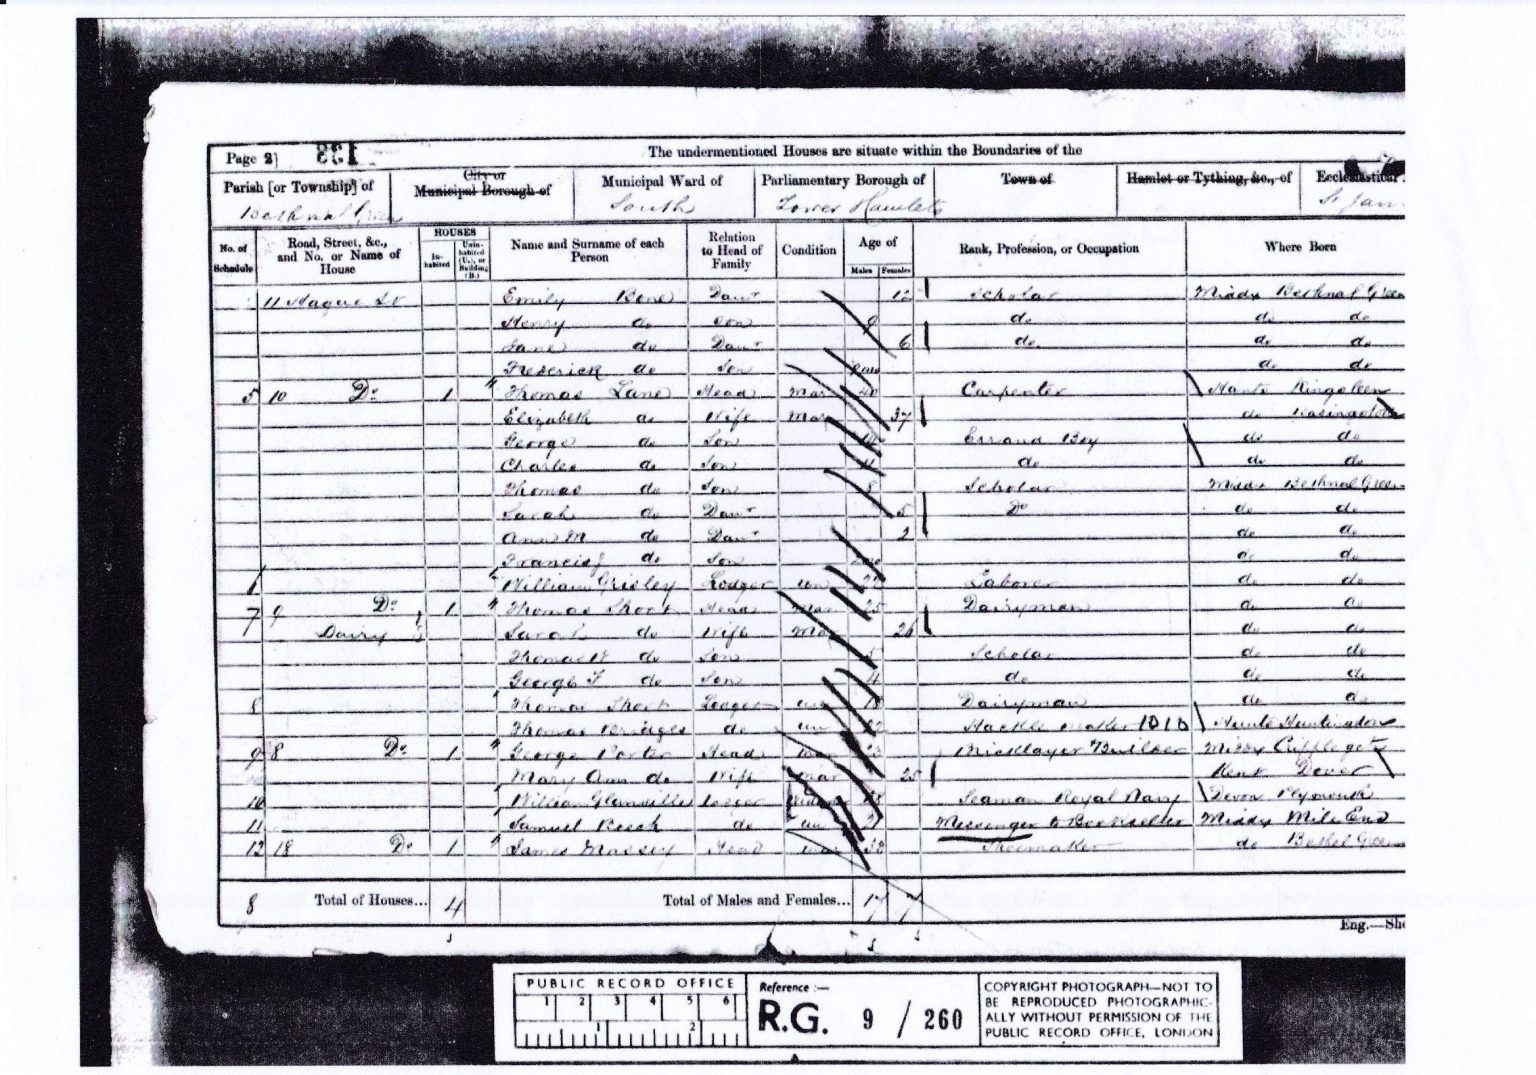 Page 2] 138
The undermentioned Houses are situate within the Boundaries of the
Parish [or Township] of City or Municipal Borough of Municipal Ward of Parliamentary Borough of Town of Hamlet or Tything, &c., of Ecclesiastical
Bethnal Green South Tower Hamlets St Jam
No. of Schedule Road, Street, &c., and No. or Name of House HOUSES Inhabited Uninhabited (U.), or Building (B.) Name and Surname of each Person Relation to Head of Family Condition Age of Males Females Rank, Profession, or Occupation Where Born
11 Hague St Emily Daur 12 Scholar Middx Bethnal Green
Henry do Son 9 do do do
Jane do Daur 6 do do do
Frederick do Son do do
5 10 Do 1 Thomas Lane Head Mar 40 Carpenter Hants
Elizabeth do Wife Mar 37 do
George do Son Errand Boy do do
Charles do Son 11 do do do
Thomas do Son 8 Scholar Middx Bethnal Green
Sarah do Daur 5 Do do do
Ann M do Daur 2 do do
Francis J do Son do do
William Lodger un 22 Laborer do do
7 9 Do 1 Thomas Head Mar 25 Dairyman do do
Dairy Sarah do Wife Mar 26 do do
Thomas W do Son 5 Scholar do do
George T do Son 4 do do do
8 Thomas Lodger un 18 Dairyman do do
Thomas Bridges do un maker 1010 Huntingdon
9 8 Do 1 George Porter Head mar Bricklayer Builder Middx
Mary Ann do Wife mar 25 Kent Dover
10 William Glanville Lodger Seaman Royal Navy Devon Plymouth
11 Samuel do un 21 Messenger to Bookseller Middx Mile End
12 18 Do 1 James Massey Head mar 32 Shoemaker do Bethel Green
8 Total of Houses... 4 Total of Males and Females... 17 7
Eng.—She
PUBLIC RECORD OFFICE
1 2 3 4 5 6
1 2
Reference :—
R.G. 9 / 260
COPYRIGHT PHOTOGRAPH—NOT TO
BE REPRODUCED PHOTOGRAPHIC-
ALLY WITHOUT PERMISSION OF THE
PUBLIC RECORD OFFICE, LONDON